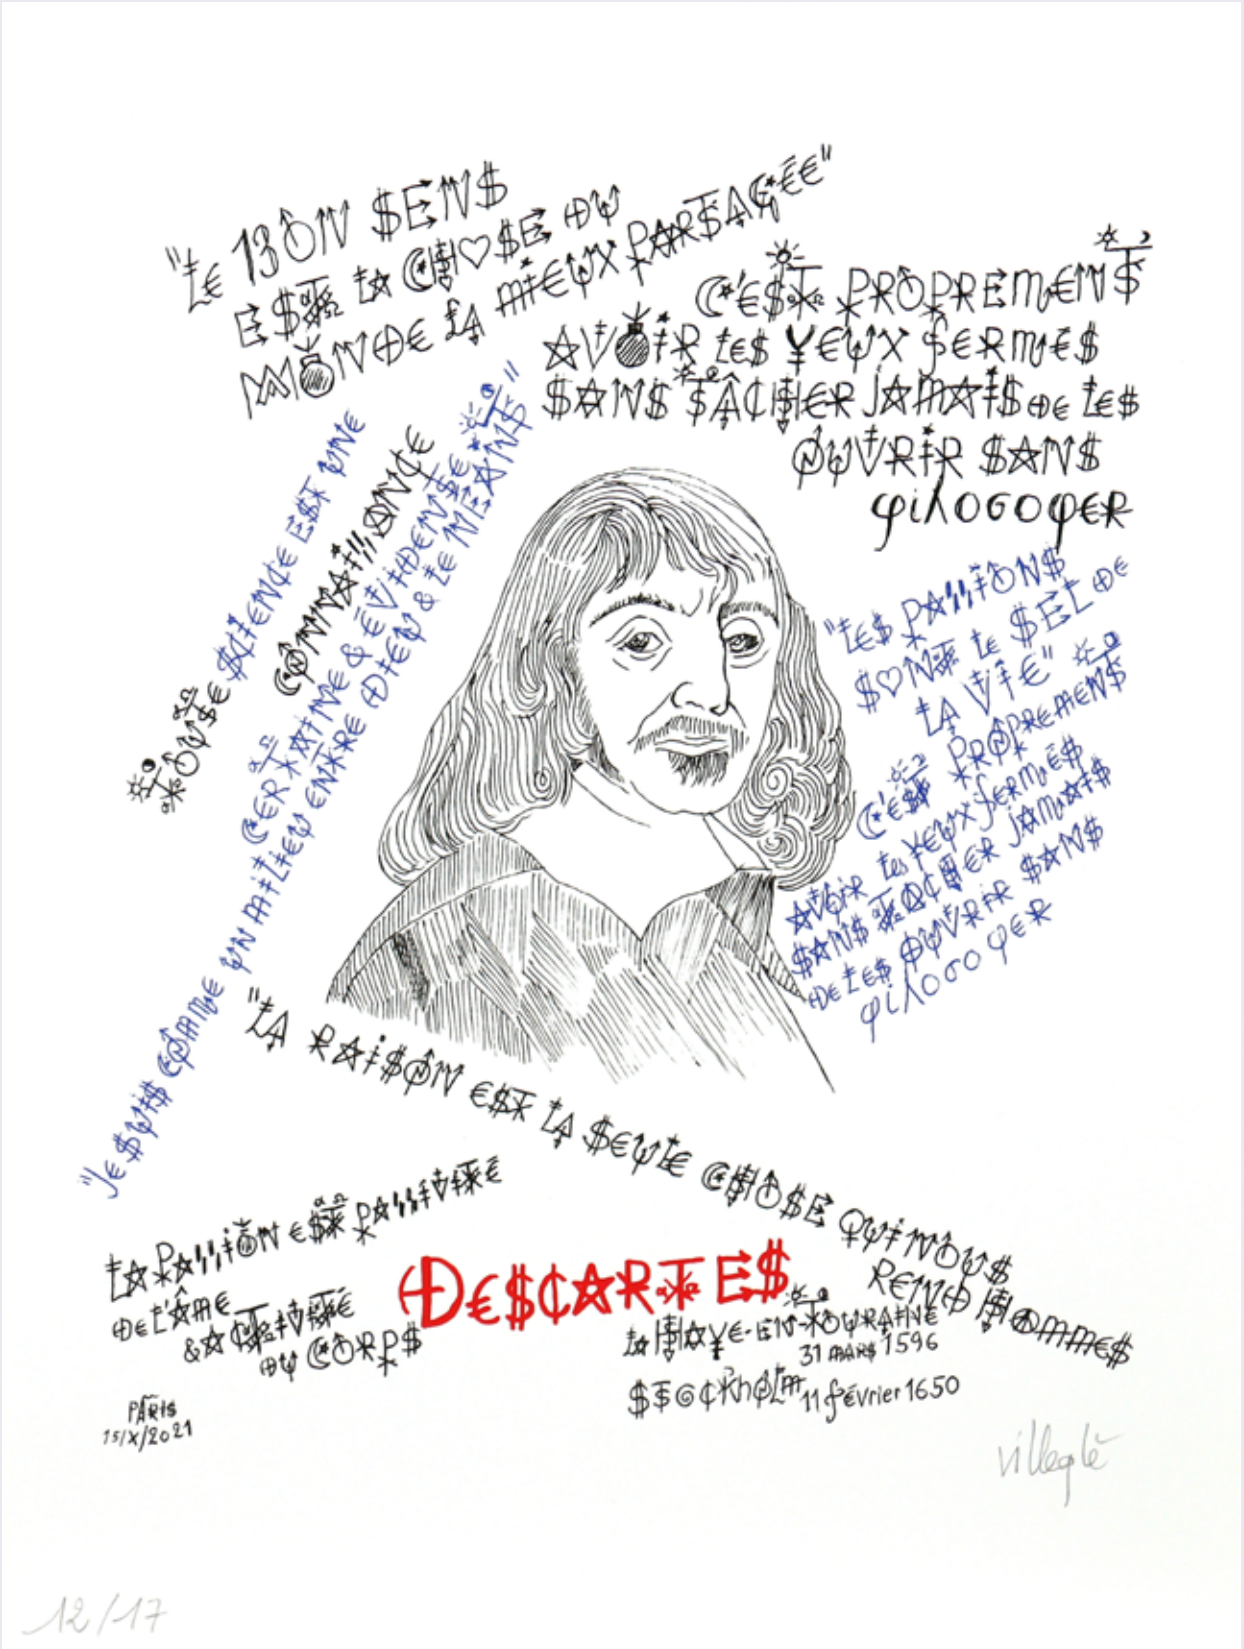 "LE BON SENS
EST LA CHOSE DU
MONDE LA MIEUX PARTAGÉE"
C'EST PROPREMENT
AVOIR LES YEUX FERMÉS
SANS TÂCHER JAMAIS DE LES
OUVRIR SANS
φiλοσοφER
TOUTE SCIENCE EST UNE
CONNAISSANCE
CERTAINE & ÉVIDENTE
"JE SUIS COMME UN MILIEU ENTRE DIEU & LE NÉANT"
"LES PASSIONS
SONT LE SEL DE
LA VIE"
C'EST PROPREMENT
AVOIR les YEUX FERMÉS
SANS TÂCHER JAMAIS
DE LES OUVRIR SANS
φiλοσοφER
"LA RAISON EST LA SEULE CHOSE QUI NOUS
REND HOMMES
LA PASSION EST PASSIVITÉ
DE L'ÂME
& ACTIVITÉ
DU CORPS
DESCARTES
LA HAYE-EN-TOURAINE
31 MARS 1596
STOCKhOLM 11 février 1650
PARIS
15/X/2021
villeglé
12/17